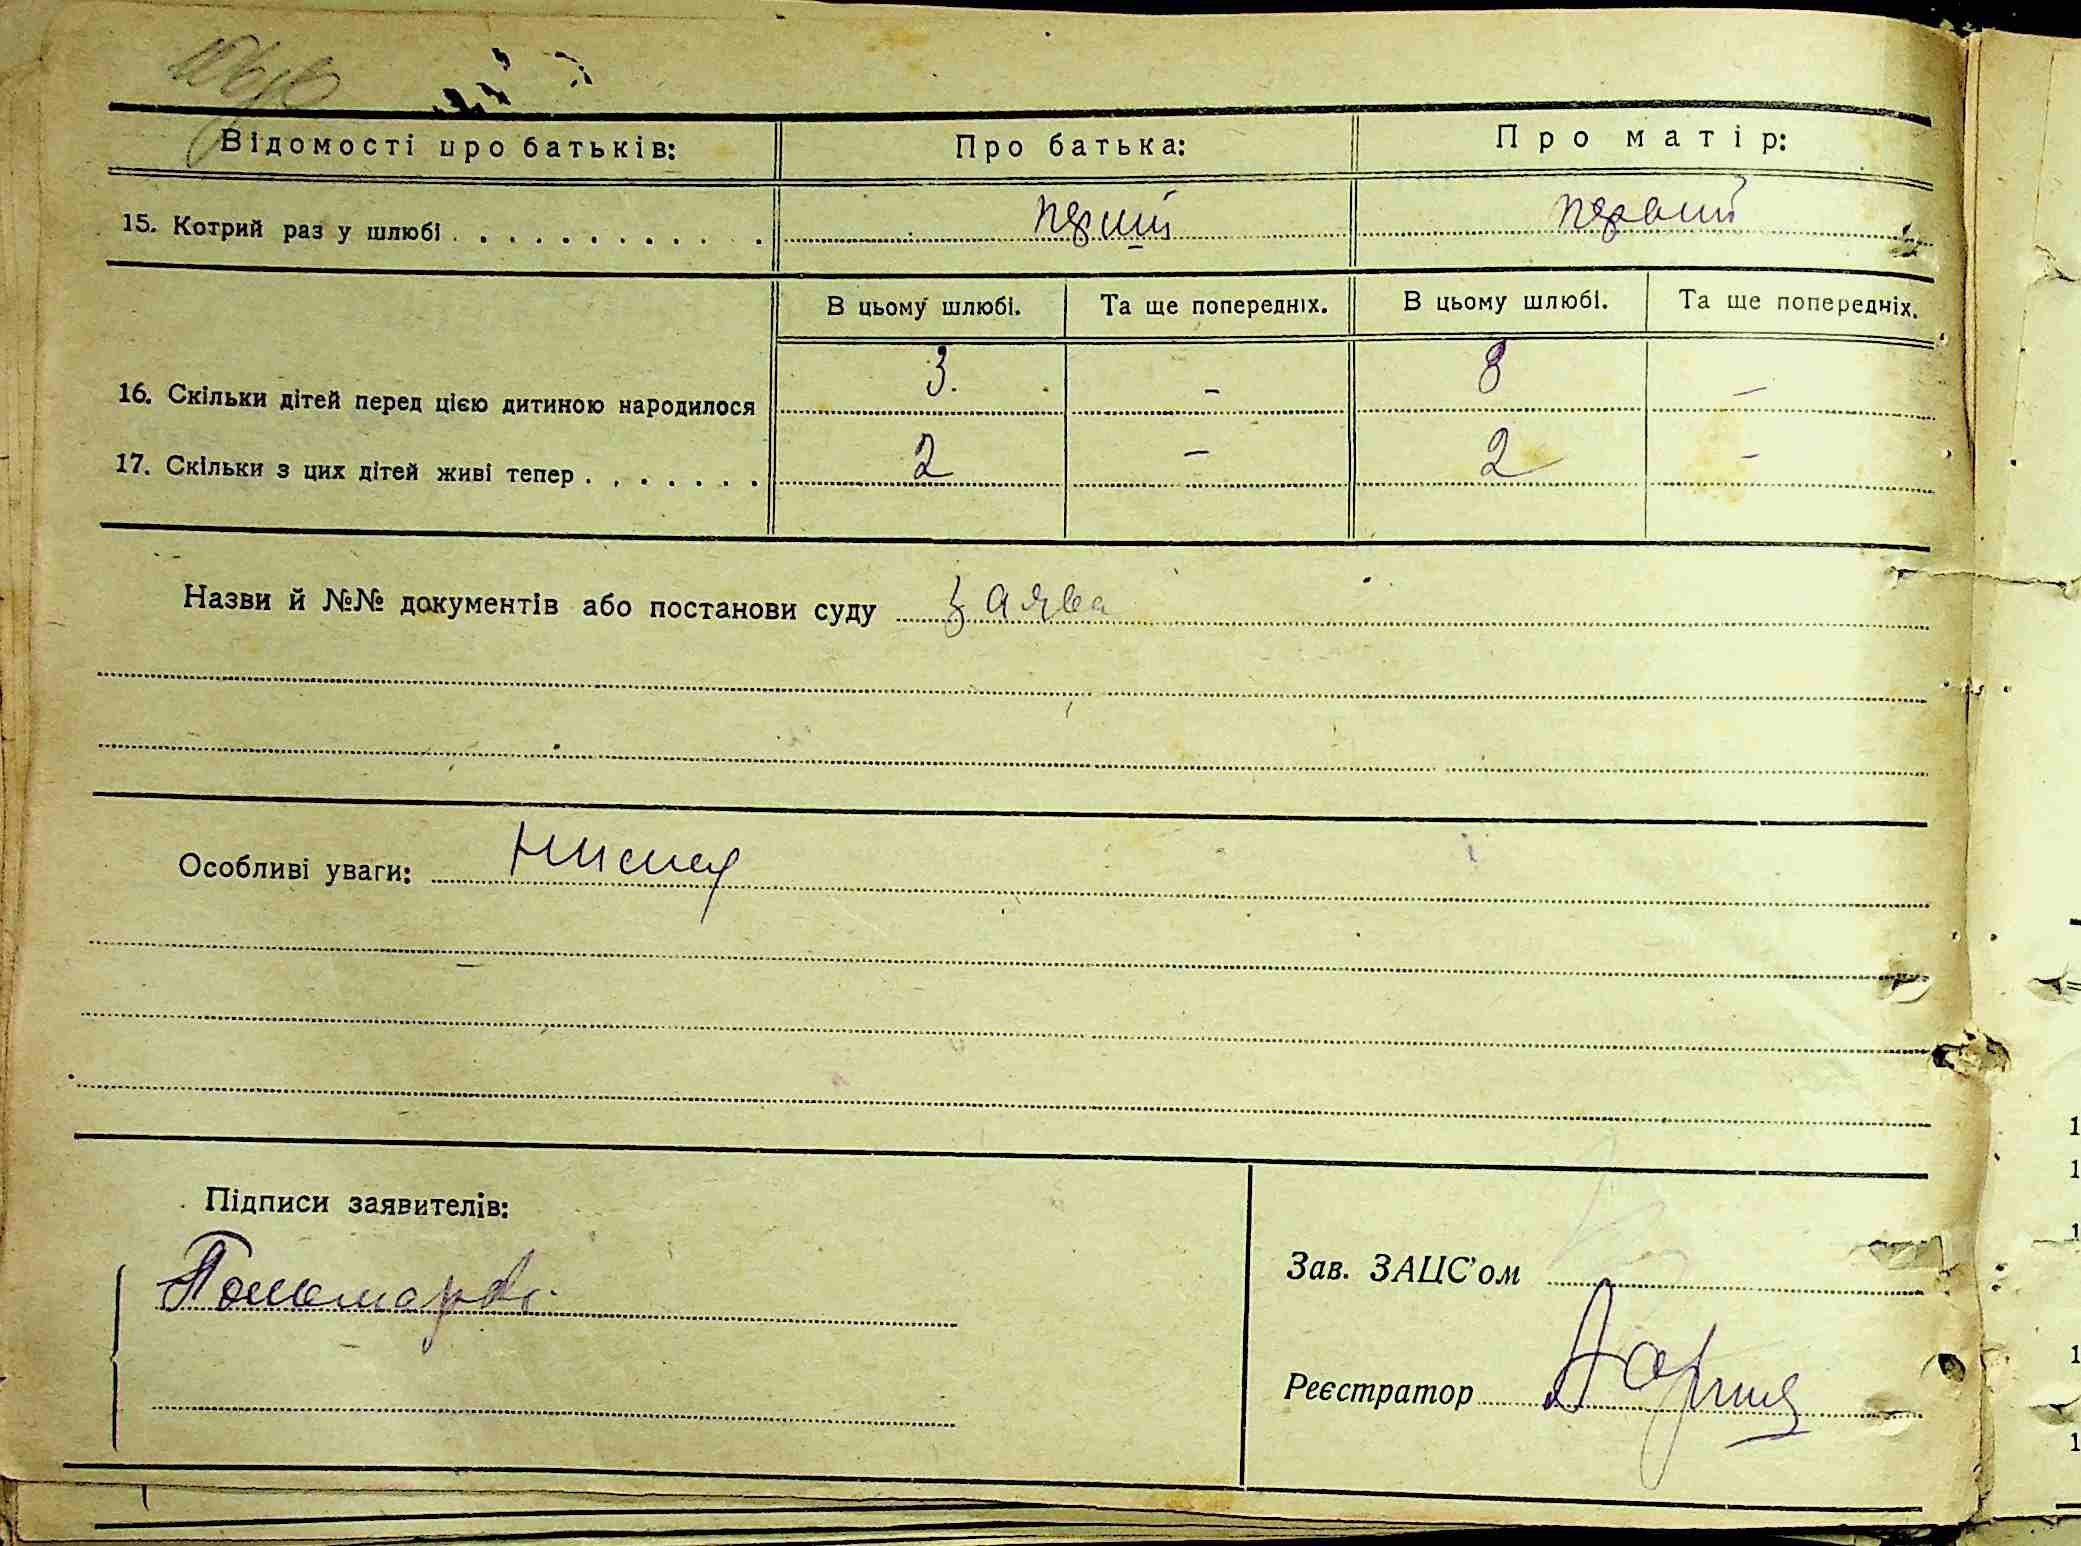 Відомості про батьків: Про батька: Про матір:
15. Котрий раз у шлюбі перший первий
В цьому шлюбі. Та ще попередніх. В цьому шлюбі. Та ще попередніх.
16. Скільки дітей перед цією дитиною народилося 3. – 8 –
17. Скільки з цих дітей живі тепер 2 – 2 –
Назви й №№ документів або постанови суду заява
Особливі уваги:
Підписи заявителів:
Зав. ЗАЦС'ом
Реєстратор